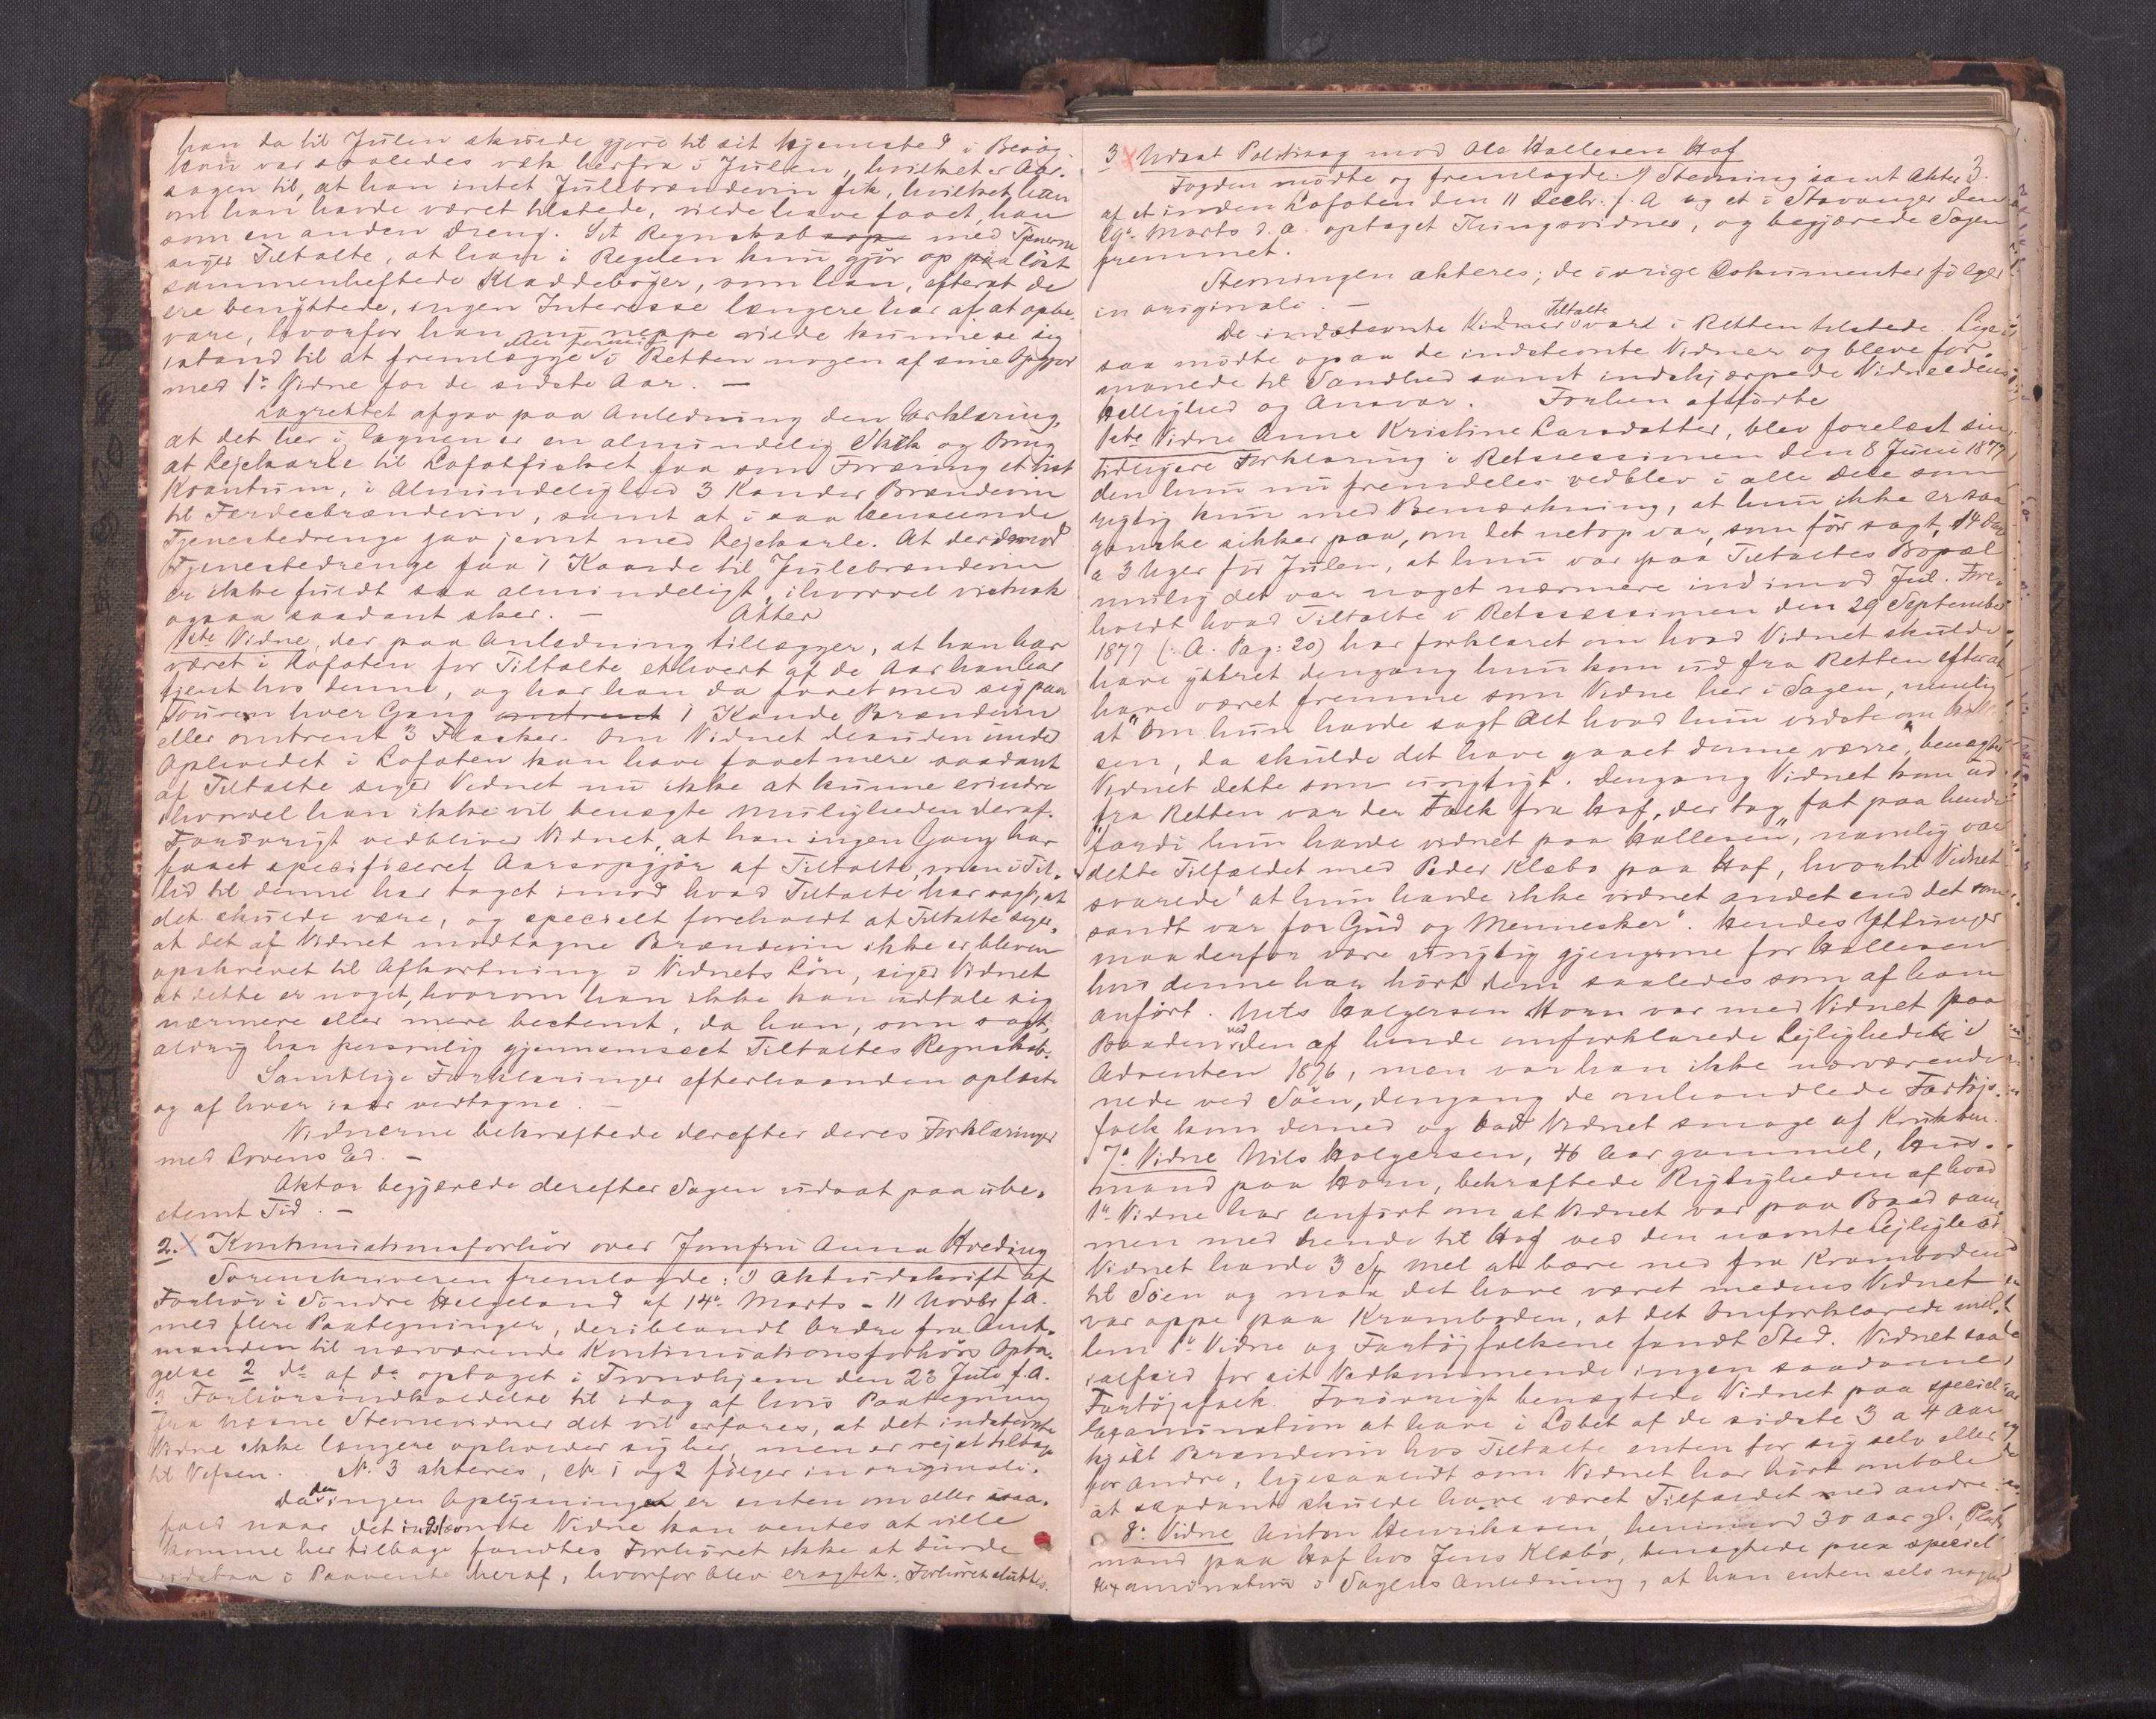 han da til Julen skulde gjøre til sit Hjemsted i Besøg.
Han var saaledes væk herfra i Julen, hvilket er Aar-
sagen til, at han intet Julebrændevin fik, hvilket han
om han havde været tilstede, vilde have faaet, han
som en anden Dreng. Sit Regnskab med Tjenerne
siger Tiltalte, at han i Regelen kun gjør op paa løst
sammenheftede Kladdebøger, som han, efterat de
ere benyttede, ingen Interesse længere har af at opbe-
vare, hvorfor han nu neppe vilde kunne se sig
istand til at fremlægge i Retten nogen af sine Opgjør
med 1ste Vidne for de sidste Aar. —
Lagrettet afgav paa Anledning den Erklæring,
at det her i Egnen er en almindelig Skik og Brug
at Lejekarle til Lofotfisket faa som Foræring et vist
Kvantum, i Almindelighed 3 Kander Brændevin
til Færdesbrændevin, samt at i saa Henseende
Tjenestedrenge jevnt med Lejekarle. At derimod
Tjenestedrenge faa 1 Kande til Julebrændevin
er ikke fuldt saa almindeligt, ihvorvel vistnok
ogsaa saadant sker. — Atter
1ste Vidne, der paa Anledning tillægger, at han har
været i Lofoten for Tiltalte ethvert af de Aar han har
tjent hos denne, og har han da faaet med sig paa
Touren hver Gang omtrent 1 Kande Brændevin
eller omtrent 3 Flasker. Om Vidnet desuden under
Opholdet i Lofoten kan have faaet mere saadant
af Tiltalte siger Vidnet nu ikke at kunne erindre
ihvorvel han ikke vil benægte Muligheden deraf.
Forøvrigt vedbliver Vidnet, at han ingen Gang har
faaet specificeret Aarsopgjør af Tiltalte, men i Til-
lid til denne har taget imod hvad Tiltalte har sagt, at
det skulde være, og specielt foreholdt at Tiltalte siger,
at det af Vidnet modtagne Brændevin ikke er bleven
opskrevet til Afkortning i Vidnets Løn, siger Vidnet
at dette er noget, hvorom han ikke kan udtale sig
nærmere eller mere bestemt, da han, som sagt,
aldrig har personlig gjennemseet Tiltaltes Regnskab.
Samtlige Forklaringer efterhaanden oplæste
og af hver især vedtagne. —
Vidnerne bekræftede derefter deres Forklaringer
med Lovens Ed. —
Aktor begjærede derefter Sagen udsat paa ube-
stemt Tid. —
2. Kontinuationsforhør over Jomfru Anna Hveding
Sorenskriveren fremlagde: 1) Aktudskrift af
Forhør i Søndre Helgeland af 14de Marts - 11 Novbr f.A.
med flere Paategninger, deriblandt Ordre fra Amt-
manden til nærværende Kontinuationsforhørs Opta-
gelse 2 do af do optaget i Trondhjem den 23 Juli f.A.
3 Forhørsindkaldelse til idag af hvis Paategning
fra Stevnevidner det vil erfares, at det indstevnte
Vidne ikke længere opholder sig her, men er rejst tilbage
til Vefsen. No. 3 akteres, No 1 og 2 følger in originali.
Da der ingen Oplysninger er enten om eller isaa-
fald naar det indstævnte Vidne kan ventes at ville
komme her tilbage fandtes Forhøret ikke at burde
udsættes i Paavente heraf, hvorfor blev eragtet: Forhøret sluttes.
3 Udsat Politisag mod Ole Hallesen Hof
3.
Fogden mødte og fremlagde: 1) Stevning samt Akter
af et inden Lofoten den 11 Decbr. f. A og et i Stavanger den
29de Marts d. A. optaget Thingsvidner, og begjærede Sagen
fremmet.
Stevningen akteres; de øvrige Dokumenter følger
in originali. —
Tiltalte
De indstevnte Vidner var i Retten tilstede. Lige-
saa mødte ogsaa de indstevnte Vidner og bleve for-
manede til Sandhed samt indskjærpede Vidneedens
Hellighed og Ansvar. Forhen afhørte
1ste Vidne Anne Kristine Larsdatter, blev forelæst sin
tidligere Forklaring i Retssessionen den 8 Juni 1877
den hun nu fremdeles vedblev i alle Dele som
rigtig kun med Bemærkning, at hun ikke er saa
ganske sikker paa, om det netop var, som før sagt, 14 Dage
a 3 Uger før Julen, at hun var paa Tiltaltes Bopæl
mulig det var noget nærmere ind imod Jul. Fore-
holdt hvad Tiltalte i Retssessionen den 29 September
1877 (: A. Pag: 20) har forklaret om hvad Vidnet skulde
have ytret dengang hun kom ud fra Retten efter at
have været fremme som Vidne her i Sagen, nemlig
at "Om hun havde sagt Alt hvad hun vidste om Halle-
sen, da skulde det have gaaet denne værre", benægter
Vidnet dette som urigtigt. Dengang Vidnet kom ud
fra Retten var der Folk fra Hof, der tog fat paa hende
"fordi hun havde vidnet paa Hallesen", nemlig var
dette Tilfældet med Peder Klæbo paa Hof, hvortil Vidnet
svarede "at hun havde ikke vidnet andet end det som
sandt var for Gud og Mennesker". Hendes Yttringer
maa derfor være urigtig gjengivne for Hallesen
hvis denne har hørt dem saaledes som af ham
anført. Nils Holgersen Horn var med Vidnet paa
Baaden ved den af hende omforklarede Lejlighed i
Adventen 1876, men var han ikke nærværende
nede ved Søen, dengang de omhandlede Fartøjs-
folk kom derned og bød Vidnet smage af Krukken.
7de Vidne Nils Holgersen, 46 Aar gammel, Hus-
mand paa Horn, bekræftede Rigtigheden af hvad
1ste Vidne har anført om at Vidnet var paa Baad sam-
men med hende til Hof ved den nævnte Lejlighed
Vidnet havde 3 Mel at bære ned fra Kramboden
til Søen og maa det have været medens Vidnet
var oppe paa Kramboden, at det Omforklarede mel-
lem 1ste Vidne og Fartøjsfolkene fandt Sted. Vidnet saa
ialfald for sit Vedkommende ingen saadanne
Fartøjsfolk. Forøvrigt benægtede Vidnet paa speciel
Examination at have i Løbet af de sidste 3 a 4 Aar
kjøbt Brændevin hos Tiltalte enten for sig selv eller
for Andre, ligesaalidt som Vidnet har hørt omtale
at saadant skulde have været Tilfældet med andre.
8de Vidne Anton Henriksen, henimod 30 Aar gl., Plads-
mand paa Hof hos Jens Klæbo, benægtede paa speciel
Examination i Sagens Anledning, at han enten selv nogen